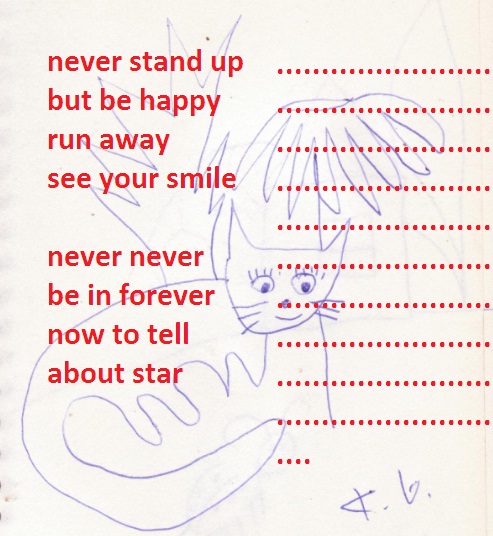 never stand up ........................
but be happy ........................
run away ........................
see your smile ........................
........................
never never ........................
be in forever ........................
now to tell ........................
about star ........................
........................
....